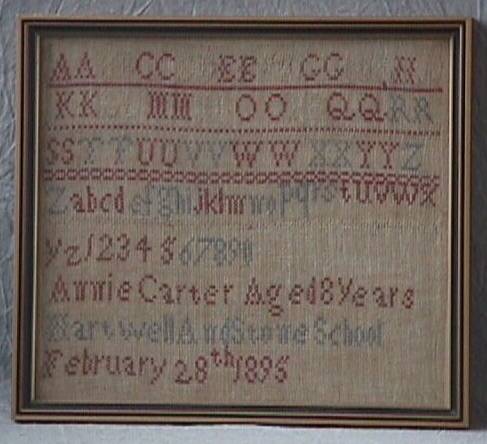 AA CC EE GG
KK MM OO QQ RR
SS TT UU VV WW XX YY Z
Z abcd efghi jklm nopqrs tuvwx
yz 1234567890
Annie Carter Aged 8 Years
Hartwell And Stowe School
February 28th